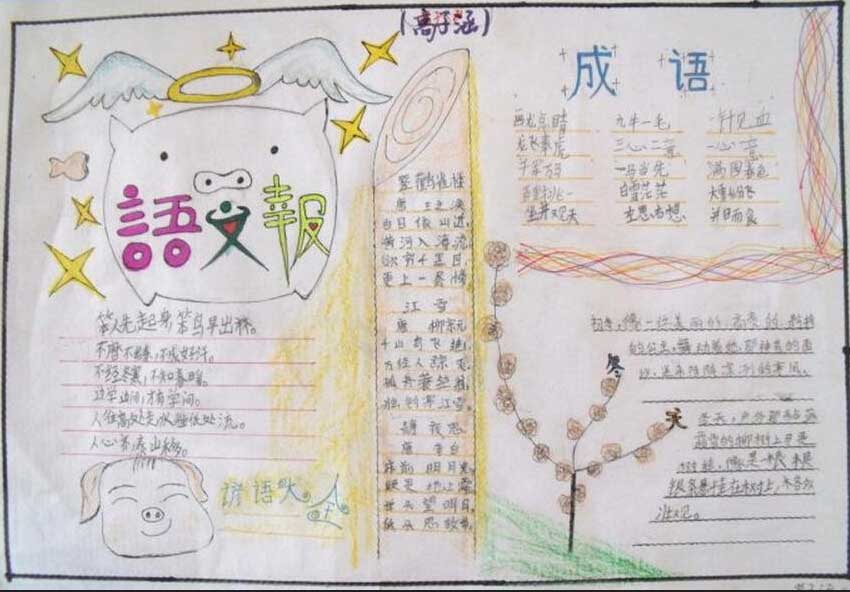 (高子涵)
語文報
笨人先起身 笨鸟早出林。
不磨不练,不成好汉。
不经冬寒,不知春暖。
边学边问,才有学问。
人往高处走,水往低处流。
人心齐,泰山移。
谚语大全
登鹳雀楼
唐 王之涣
白日依山进,
黄河入海流
欲穷千里目,
更上一层楼
江雪
唐 柳宗元
千山鸟飞绝,
万径人踪灭
孤舟蓑笠翁,
独钓寒江雪。
静夜思
唐 李白
床前明月光
疑是地上霜
举头望明月,
低头思故乡。
成语
画龙点睛 九牛一毛 一针见血
龙飞凤虎 三心二意 一心一意
千军万马 一马当先 满园春色
百里挑一 白雪茫茫 大雪纷飞
坐井观天 左思右想 并日而食
初冬,像一位美丽的、高贵的、矜持
的公主,舞动着她
冬天
冬天,户外那
雪的柳树上
树挂,像是一根根
银条悬挂在树上,
壮观。